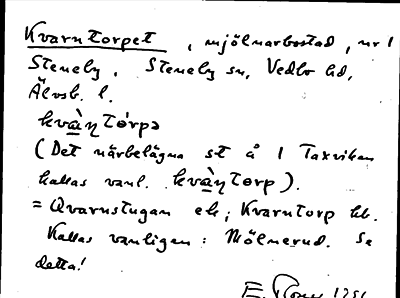 Kvarntorpet, mjölnarbostad, nr 1
Steneby, Steneby sn, Vedbo hd,
Älvsb. l.
kvàηtórpə
(Det närbelägna st å 1 Taxviken
kallas vanl. kvàηtorp).
= Qvarnstugan ek; Kvarntorp hb.
Kallas vanligen: Mölnerud. Se
detta!
E.